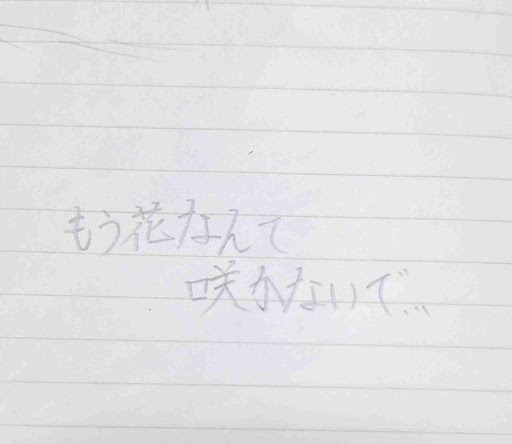 もう花なんて
咲かないで...